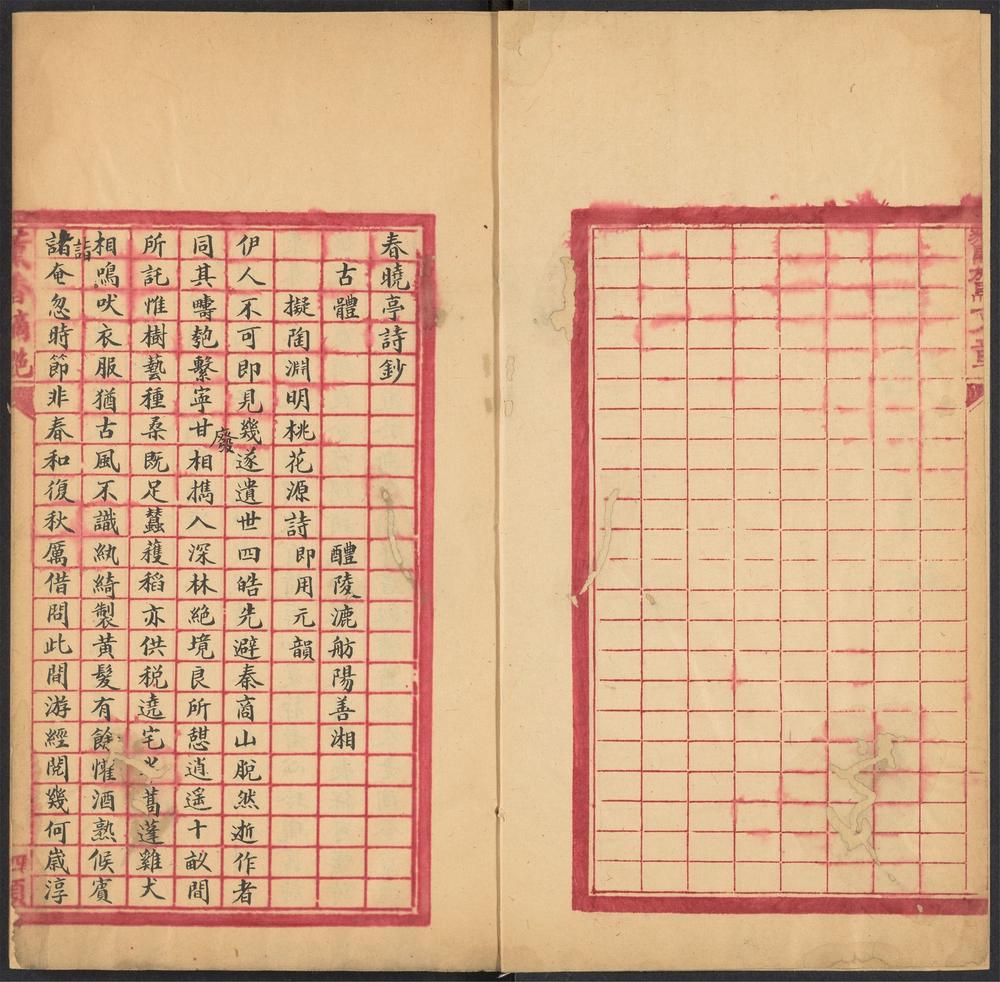 春曉亭詩鈔
古體　醴陵漉舫陽善湘
擬陶淵明桃花源詩即用元韻
伊人不可即見幾遂遺世四皓先避秦商山脫然逝作者
同其疇匏繫寧甘廢相攜入深林絕境良所憩逍遥十畝間
所託惟樹藝種桑既足蠶穫稻亦供税遶宅舊蓬雞犬
相鳴吠衣服猶古風不識紈綺製黄髮有餘懽酒熟候賓
諸詣奄忽時節非春和復秋厲借問此間游經閱幾何歲淳